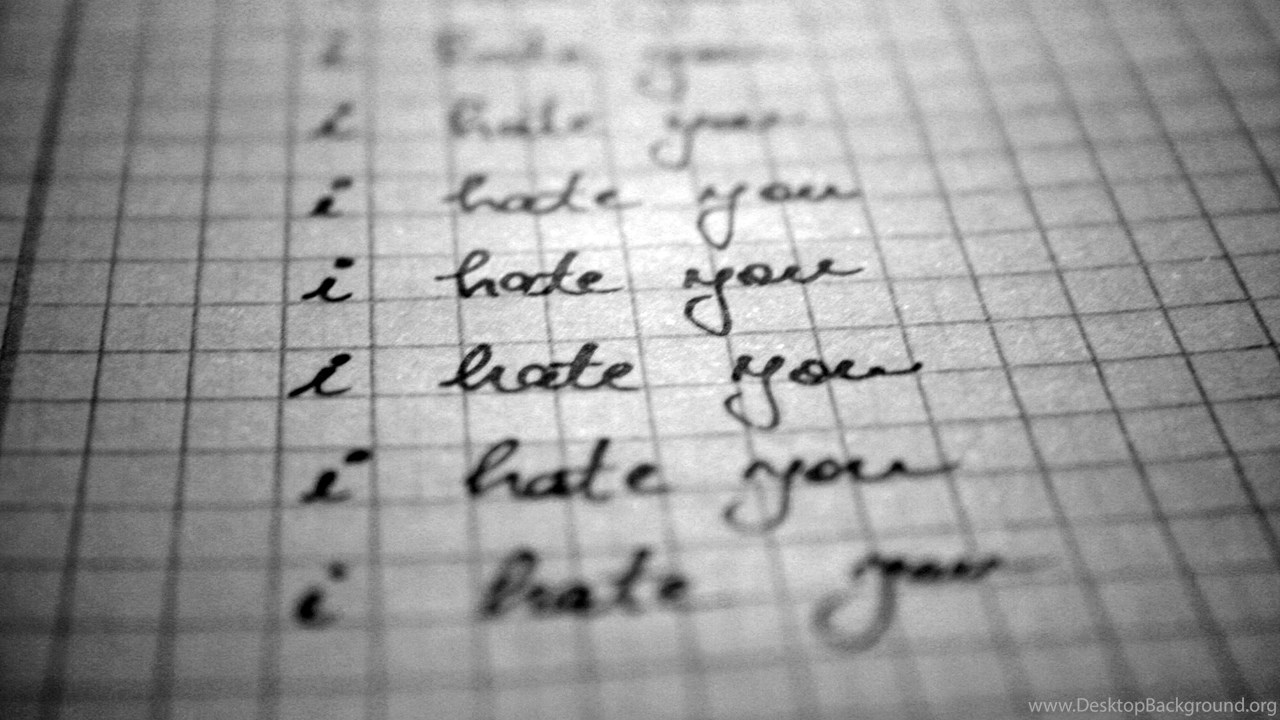 i hate you
i hate you
i hate you
i hate you
i hate you
i hate you
i hate you
www.DesktopBackground.org